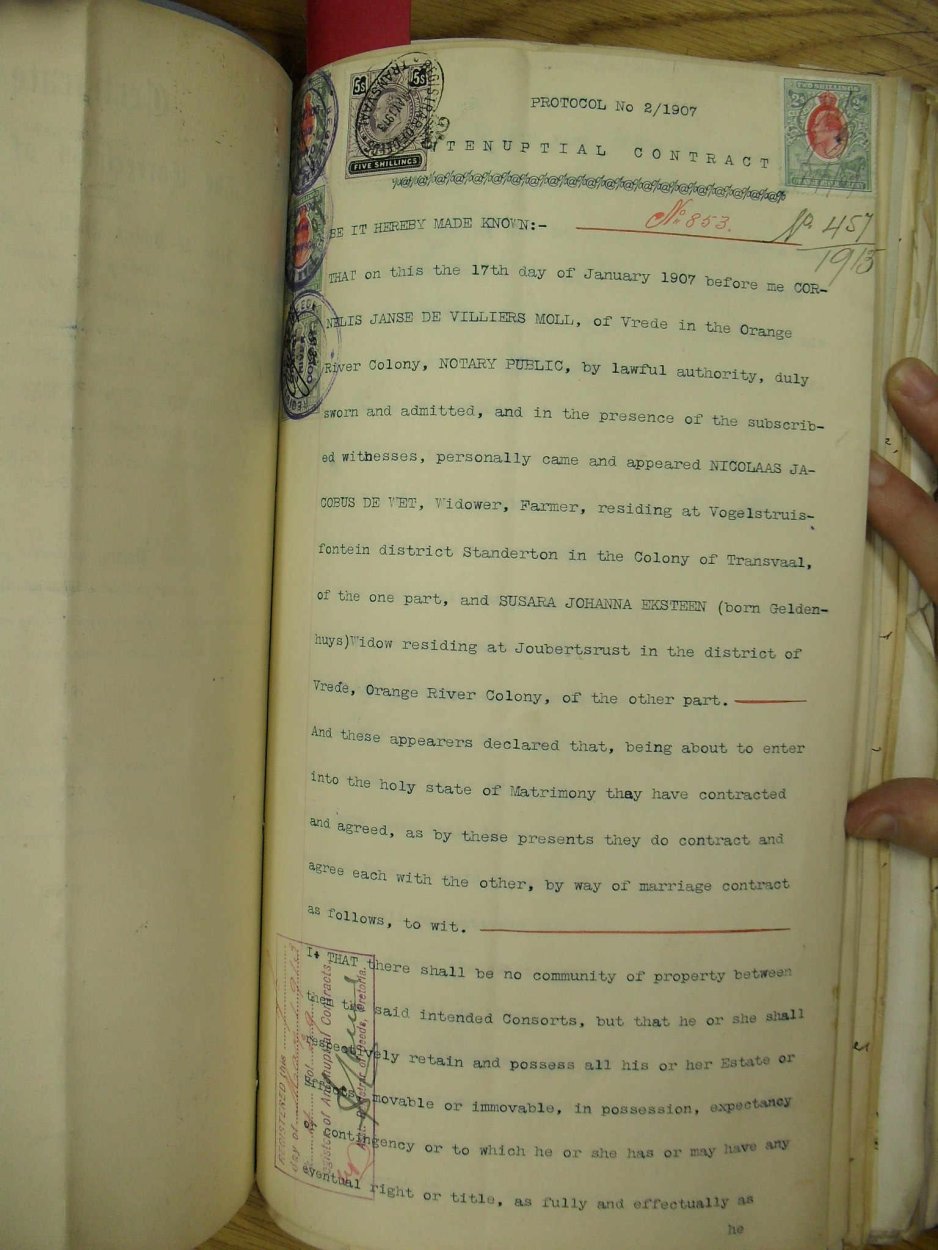 PROTOCOL No 2/1907
5s 5s
REGISTRAR OF DEEDS
TRANSVAAL
FIVE SHILLINGS
TWO SHILLINGS
TENUPTIAL CONTRACT
No 853.
No 457
1913
BE IT HEREBY MADE KNOWN:-
THAT on this the 17th day of January 1907 before me COR-
NELIS JANSE DE VILLIERS MOLL, of Vrede in the Orange
River Colony, NOTARY PUBLIC, by lawful authority, duly
sworn and admitted, and in the presence of the subscrib-
ed witnesses, personally came and appeared NICOLAAS JA-
COBUS DE WET, Widower, Farmer, residing at Vogelstruis-
fontein district Standerton in the Colony of Transvaal,
of the one part, and SUSARA JOHANNA EKSTEEN (born Gelden-
huys)Widow residing at Joubertsrust in the district of
Vrede, Orange River Colony, of the other part.
And these appearers declared that, being about to enter
into the holy state of Matrimony they have contracted
and agreed, as by these presents they do contract and
agree each with the other, by way of marriage contract
as follows, to wit.
I. THAT there shall be no community of property between
them the said intended Consorts, but that he or she shall
respectively retain and possess all his or her Estate or
movable or immovable, in possession, expectancy
contingency or to which he or she has or may have any
eventual right or title, as fully and effectually as
he
REGISTERED this
day of
Register of Antenuptial Contracts
Registrar of Deeds, Pretoria.